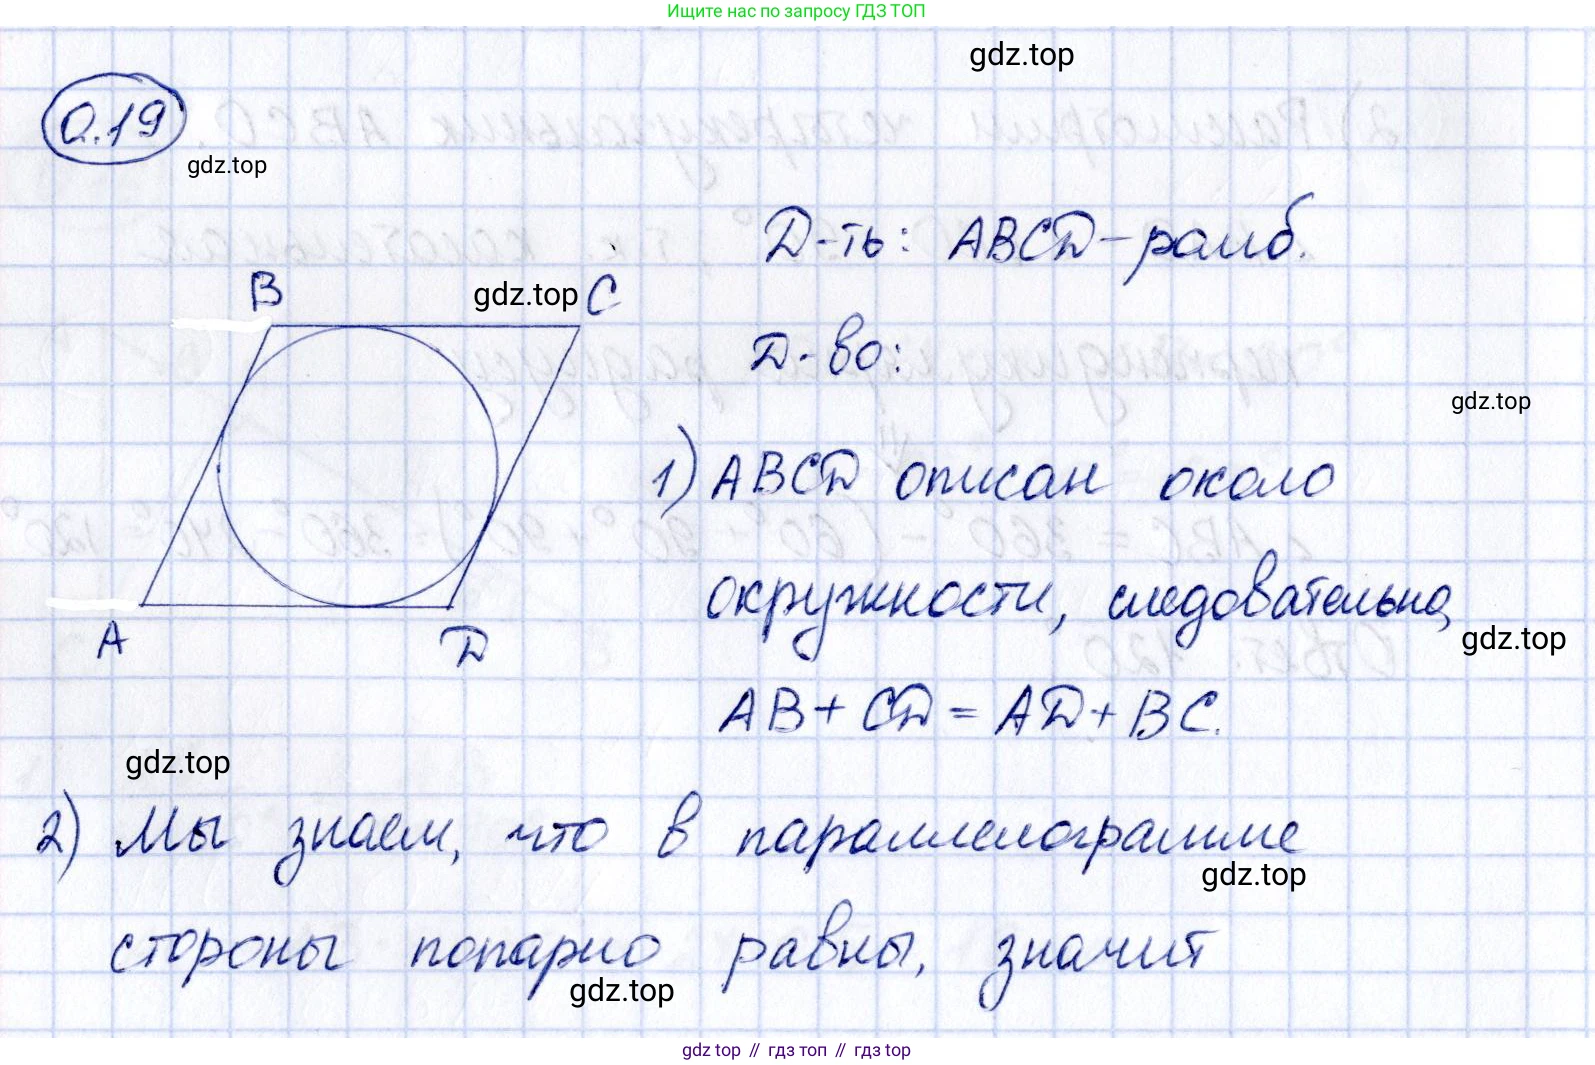 Ищите нас по запросу ГДЗ ТОП
gdz.top
0.19
gdz.top
Д-ть: ABCD - ромб.
B
gdz.top
C
Д-во:
gdz.top
1) ABCD описан около
окружности, следовательно,
gdz.top
A
D
AB + CD = AD + BC.
gdz.top
2) Мы знаем, что в параллелограмме
gdz.top
стороны попарно равны, значит
gdz.top
gdz top // гдз топ // gdz top